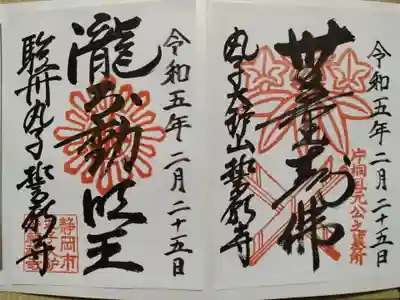 令和五年二月二十五日
無量寿佛
丸子大鈩山誓願寺
片桐且元公之墓所
令和五年二月二十五日
瀧不動明王
駿州丸子誓願寺
静岡市